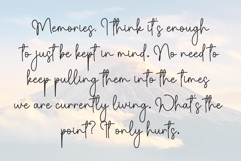 Memories. I think it's enough
to just be kept in mind. No need to
keep pulling them into the times
we are currently living. What's the
point? It only hurts.